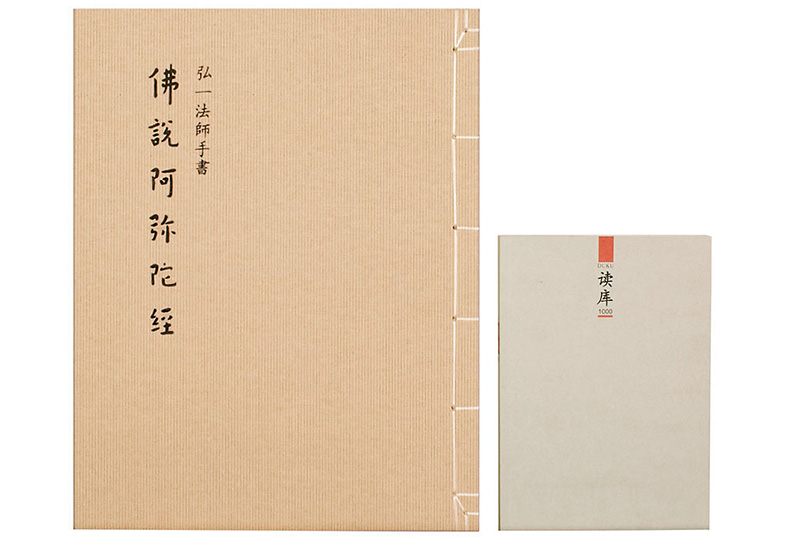 弘一法師手書
佛說阿弥陀經
DUKU
读库
1000